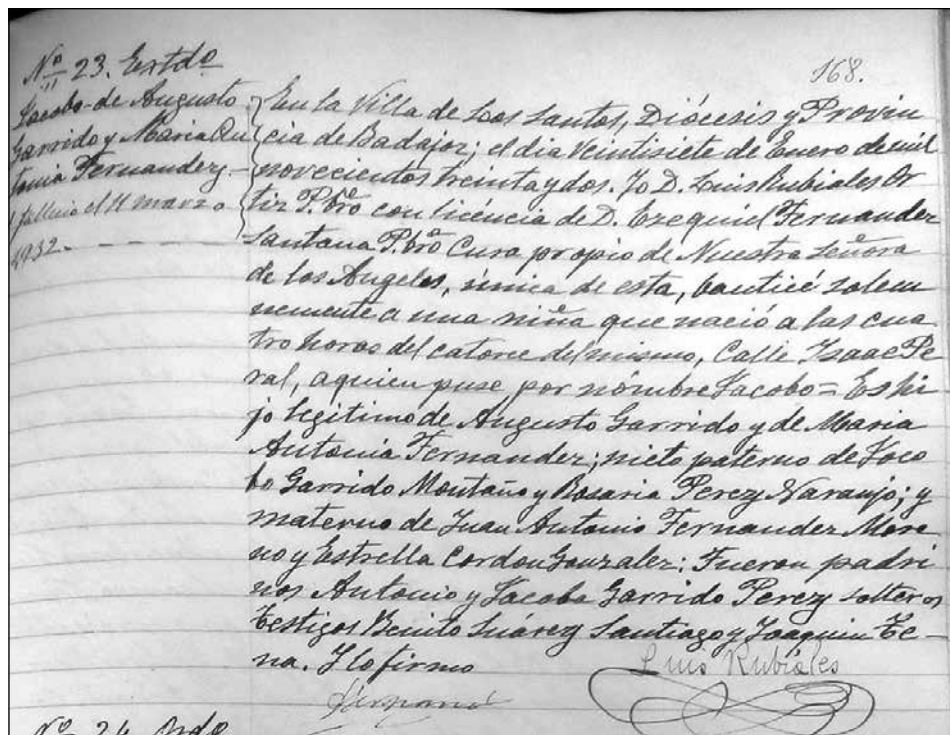 Nº 23. Extdo
168.
Jacobo de Augusto
Garrido y Maria An
tonia Fernandez.
falleció el 11 marzo
1932.
En la Villa de Los Santos, Diócesis y Provin
cia de Badajoz; el dia Veintisiete de Enero de mil
novecientos treinta y dos. Yo D. Luis Rubiales Or
tiz P.bro con licencia de D. Ezequiel Fernandez
Santana P.bro Cura propio de Nuestra Señora
de los Angeles, única de esta, bauticé solem
nemente a una niña que nació a las cua
tro horas del catorce del mismo, Calle Isaac Pe
ral, a quien puse por nómbre Jacobo = Es hi
jo legitimo de Augusto Garrido y de Maria
Antonia Fernandez; nieto paterno de Jaco
bo Garrido Montaño y Rosario Perez Naranjo; y
materno de Juan Antonio Fernandez More
no y Estrella Cordon Gonzalez: Fueron padri
nos Antonio y Jacoba Garrido Perez solteros
testigos Benito Suárez Santiago y Joaquin Te-
na. Y lo firmo
Luis Rubiales
Nº 24.